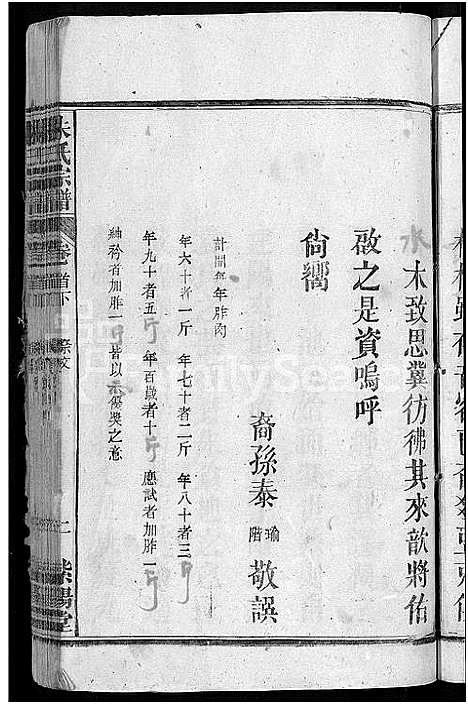 水木致思冀彷彿其來歆將佑
啟之是資嗚呼
尙嚮
裔孫泰瑜階敬譔
計開每年胙肉
年六十者一斤 年七十者二斤 年八十者三斤
年九十者五斤 年百歲者十斤 應試者加胙一斤
紳衿者加胙一斤 皆以示優奬之意
朱氏宗譜
卷首下
祭文
二
紫陽堂